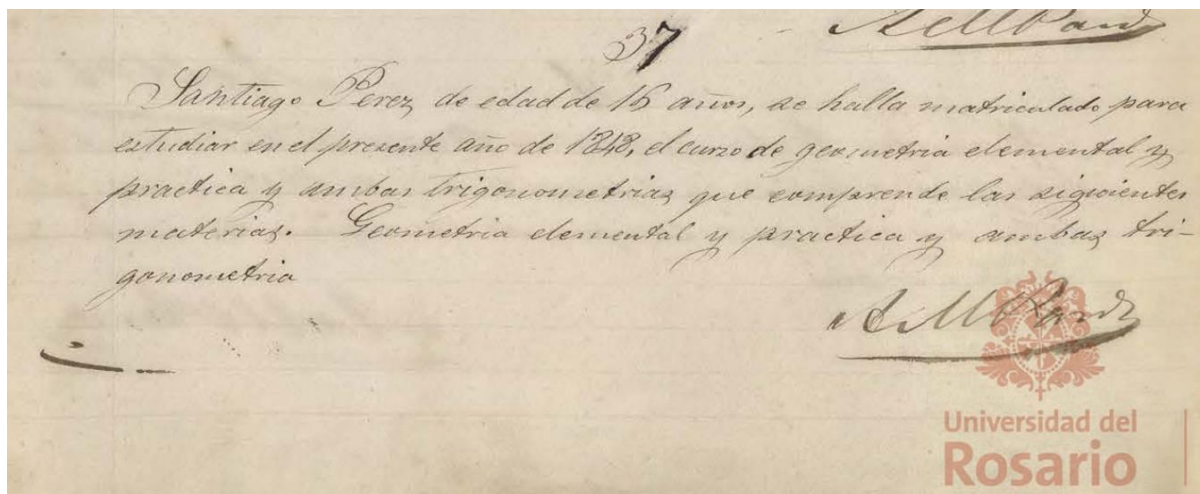 37
Santiago Perez, de edad de 16 años, se halla matriculado para
estudiar en el presente año de 1848, el curzo de geometria elemental y
practica y ambas trigonometrias que comprende las siguientes
materias. Geometria elemental y practica y ambas tri-
gonometria
Universidad del
Rosario